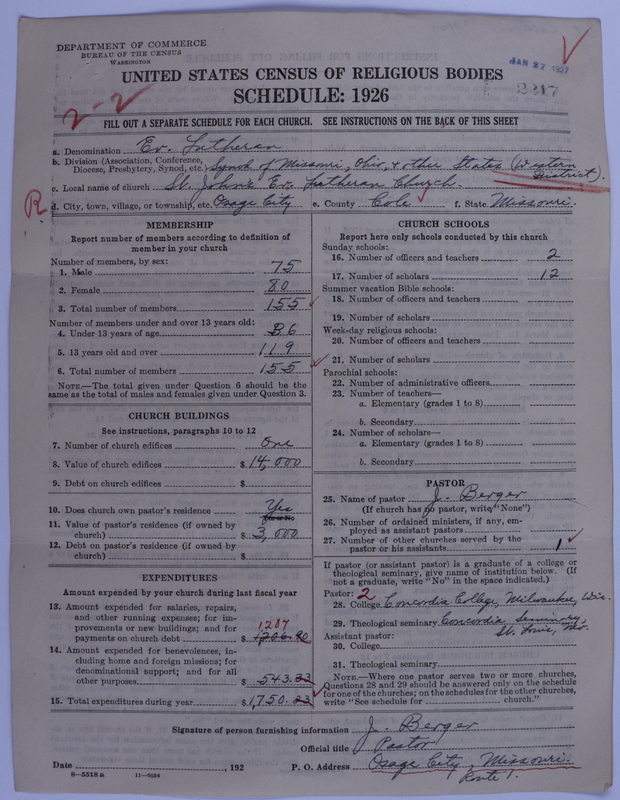 DEPARTMENT OF COMMERCE
BUREAU OF THE CENSUS
WASHINGTON
JAN 27 1927
2-2
UNITED STATES CENSUS OF RELIGIOUS BODIES
SCHEDULE: 1926
FILL OUT A SEPARATE SCHEDULE FOR EACH CHURCH. SEE INSTRUCTIONS ON THE BACK OF THIS SHEET
a. Denomination Ev. Lutheran
b. Division (Association, Conference, Diocese, Presbytery, Synod, etc.) Synod of Missouri, Ohio, & other States (Western District).
c. Local name of church St. John's Ev. Lutheran Church.
R
d. City, town, village, or township, etc. Osage City e. County Cole f. State Missouri.
MEMBERSHIP
Report number of members according to definition of member in your church
Number of members, by sex:
1. Male 75
2. Female 80
3. Total number of members 155
Number of members under and over 13 years old:
4. Under 13 years of age 36
5. 13 years old and over 119
6. Total number of members 155
NOTE.—The total given under Question 6 should be the same as the total of males and females given under Question 3.
CHURCH BUILDINGS
See instructions, paragraphs 10 to 12
7. Number of church edifices One
8. Value of church edifices $14,000
9. Debt on church edifices $
10. Does church own pastor's residence Yes
11. Value of pastor's residence (if owned by church) $3,000
12. Debt on pastor's residence (if owned by church) $
EXPENDITURES
Amount expended by your church during last fiscal year
13. Amount expended for salaries, repairs, and other running expenses; for improvements or new buildings; and for payments on church debt $ 1207 1206.90
14. Amount expended for benevolences, including home and foreign missions; for denominational support; and for all other purposes $543.33
15. Total expenditures during year $1,750.23
CHURCH SCHOOLS
Report here only schools conducted by this church
Sunday schools:
16. Number of officers and teachers 2
17. Number of scholars 12
Summer vacation Bible schools:
18. Number of officers and teachers
19. Number of scholars
Week-day religious schools:
20. Number of officers and teachers
21. Number of scholars
Parochial schools:
22. Number of administrative officers
23. Number of teachers—
a. Elementary (grades 1 to 8)
b. Secondary
24. Number of scholars—
a. Elementary (grades 1 to 8)
b. Secondary
PASTOR
25. Name of pastor J. Berger
(If church has no pastor, write "None")
26. Number of ordained ministers, if any, employed as assistant pastors
27. Number of other churches served by the pastor or his assistants 1
If pastor (or assistant pastor) is a graduate of a college or theological seminary, give name of institution below. (If not a graduate, write "No" in the space indicated.)
Pastor: 2
28. College Concordia College, Milwaukee, Wis.
29. Theological seminary Concordia Seminary, St. Louis, Mo.
Assistant pastor:
30. College
31. Theological seminary
NOTE.—Where one pastor serves two or more churches, Questions 28 and 29 should be answered only on the schedule for one of the churches; on the schedules for the other churches, write "See schedule for church."
Signature of person furnishing information J. Berger
Official title Pastor
Date , 192 P. O. Address Osage City, Missouri.
Route 1.
8—5518 a 11—9054